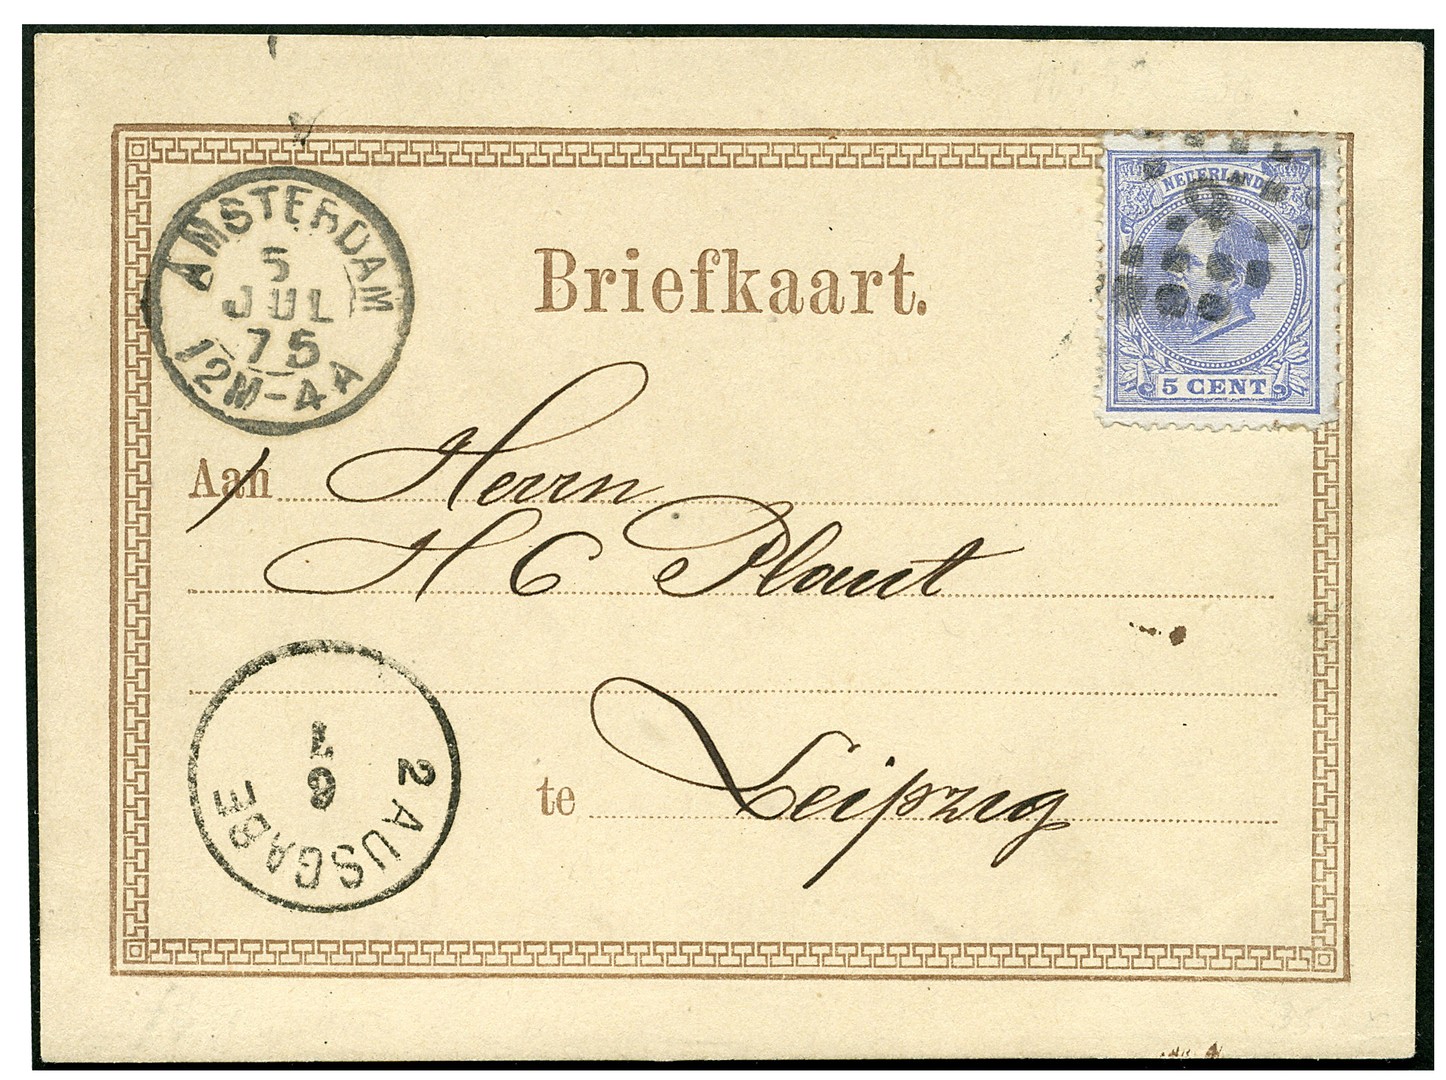 AMSTERDAM
5
JUL
75
12M-4A
NEDERLAND
5 CENT
Briefkaart.
Aan Herrn
H C Plaut
te Leipzig
2 AUSGABE
6
7